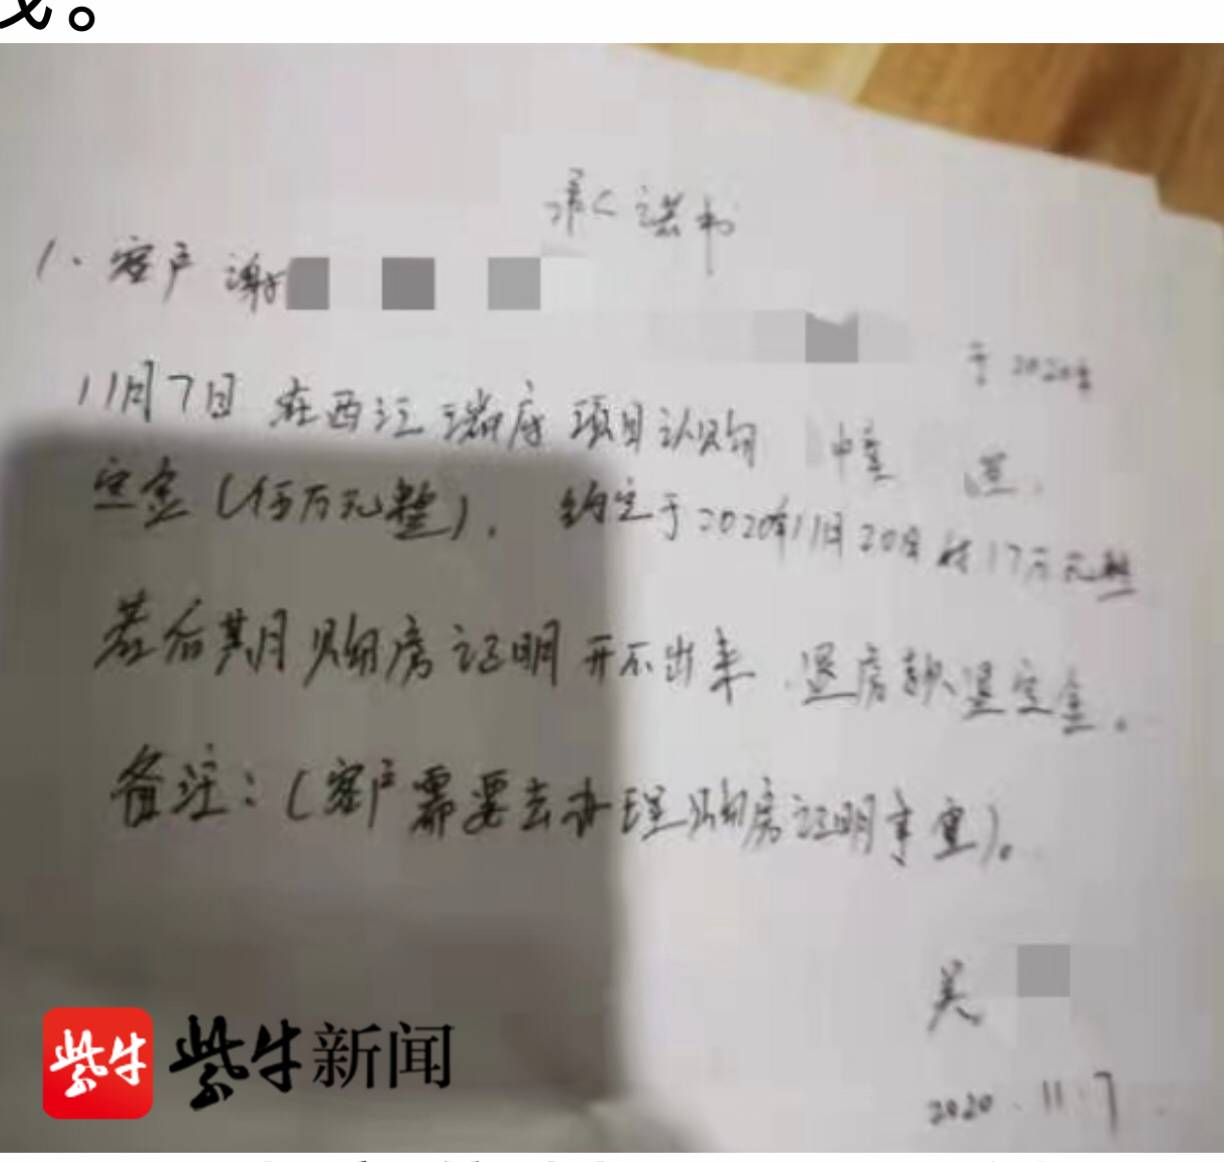 。
承诺书
1、客户 谢
于2020年
11月7日 在西江瑞府 项目认购
定金（伍万元整）. 约定于2020年11月20日 付17万元整
若后期购房证明开不出来，退房款退定金。
备注：（客户需要去办理购房证明事宜）。
吴
2020.11.7
紫牛 紫牛新闻